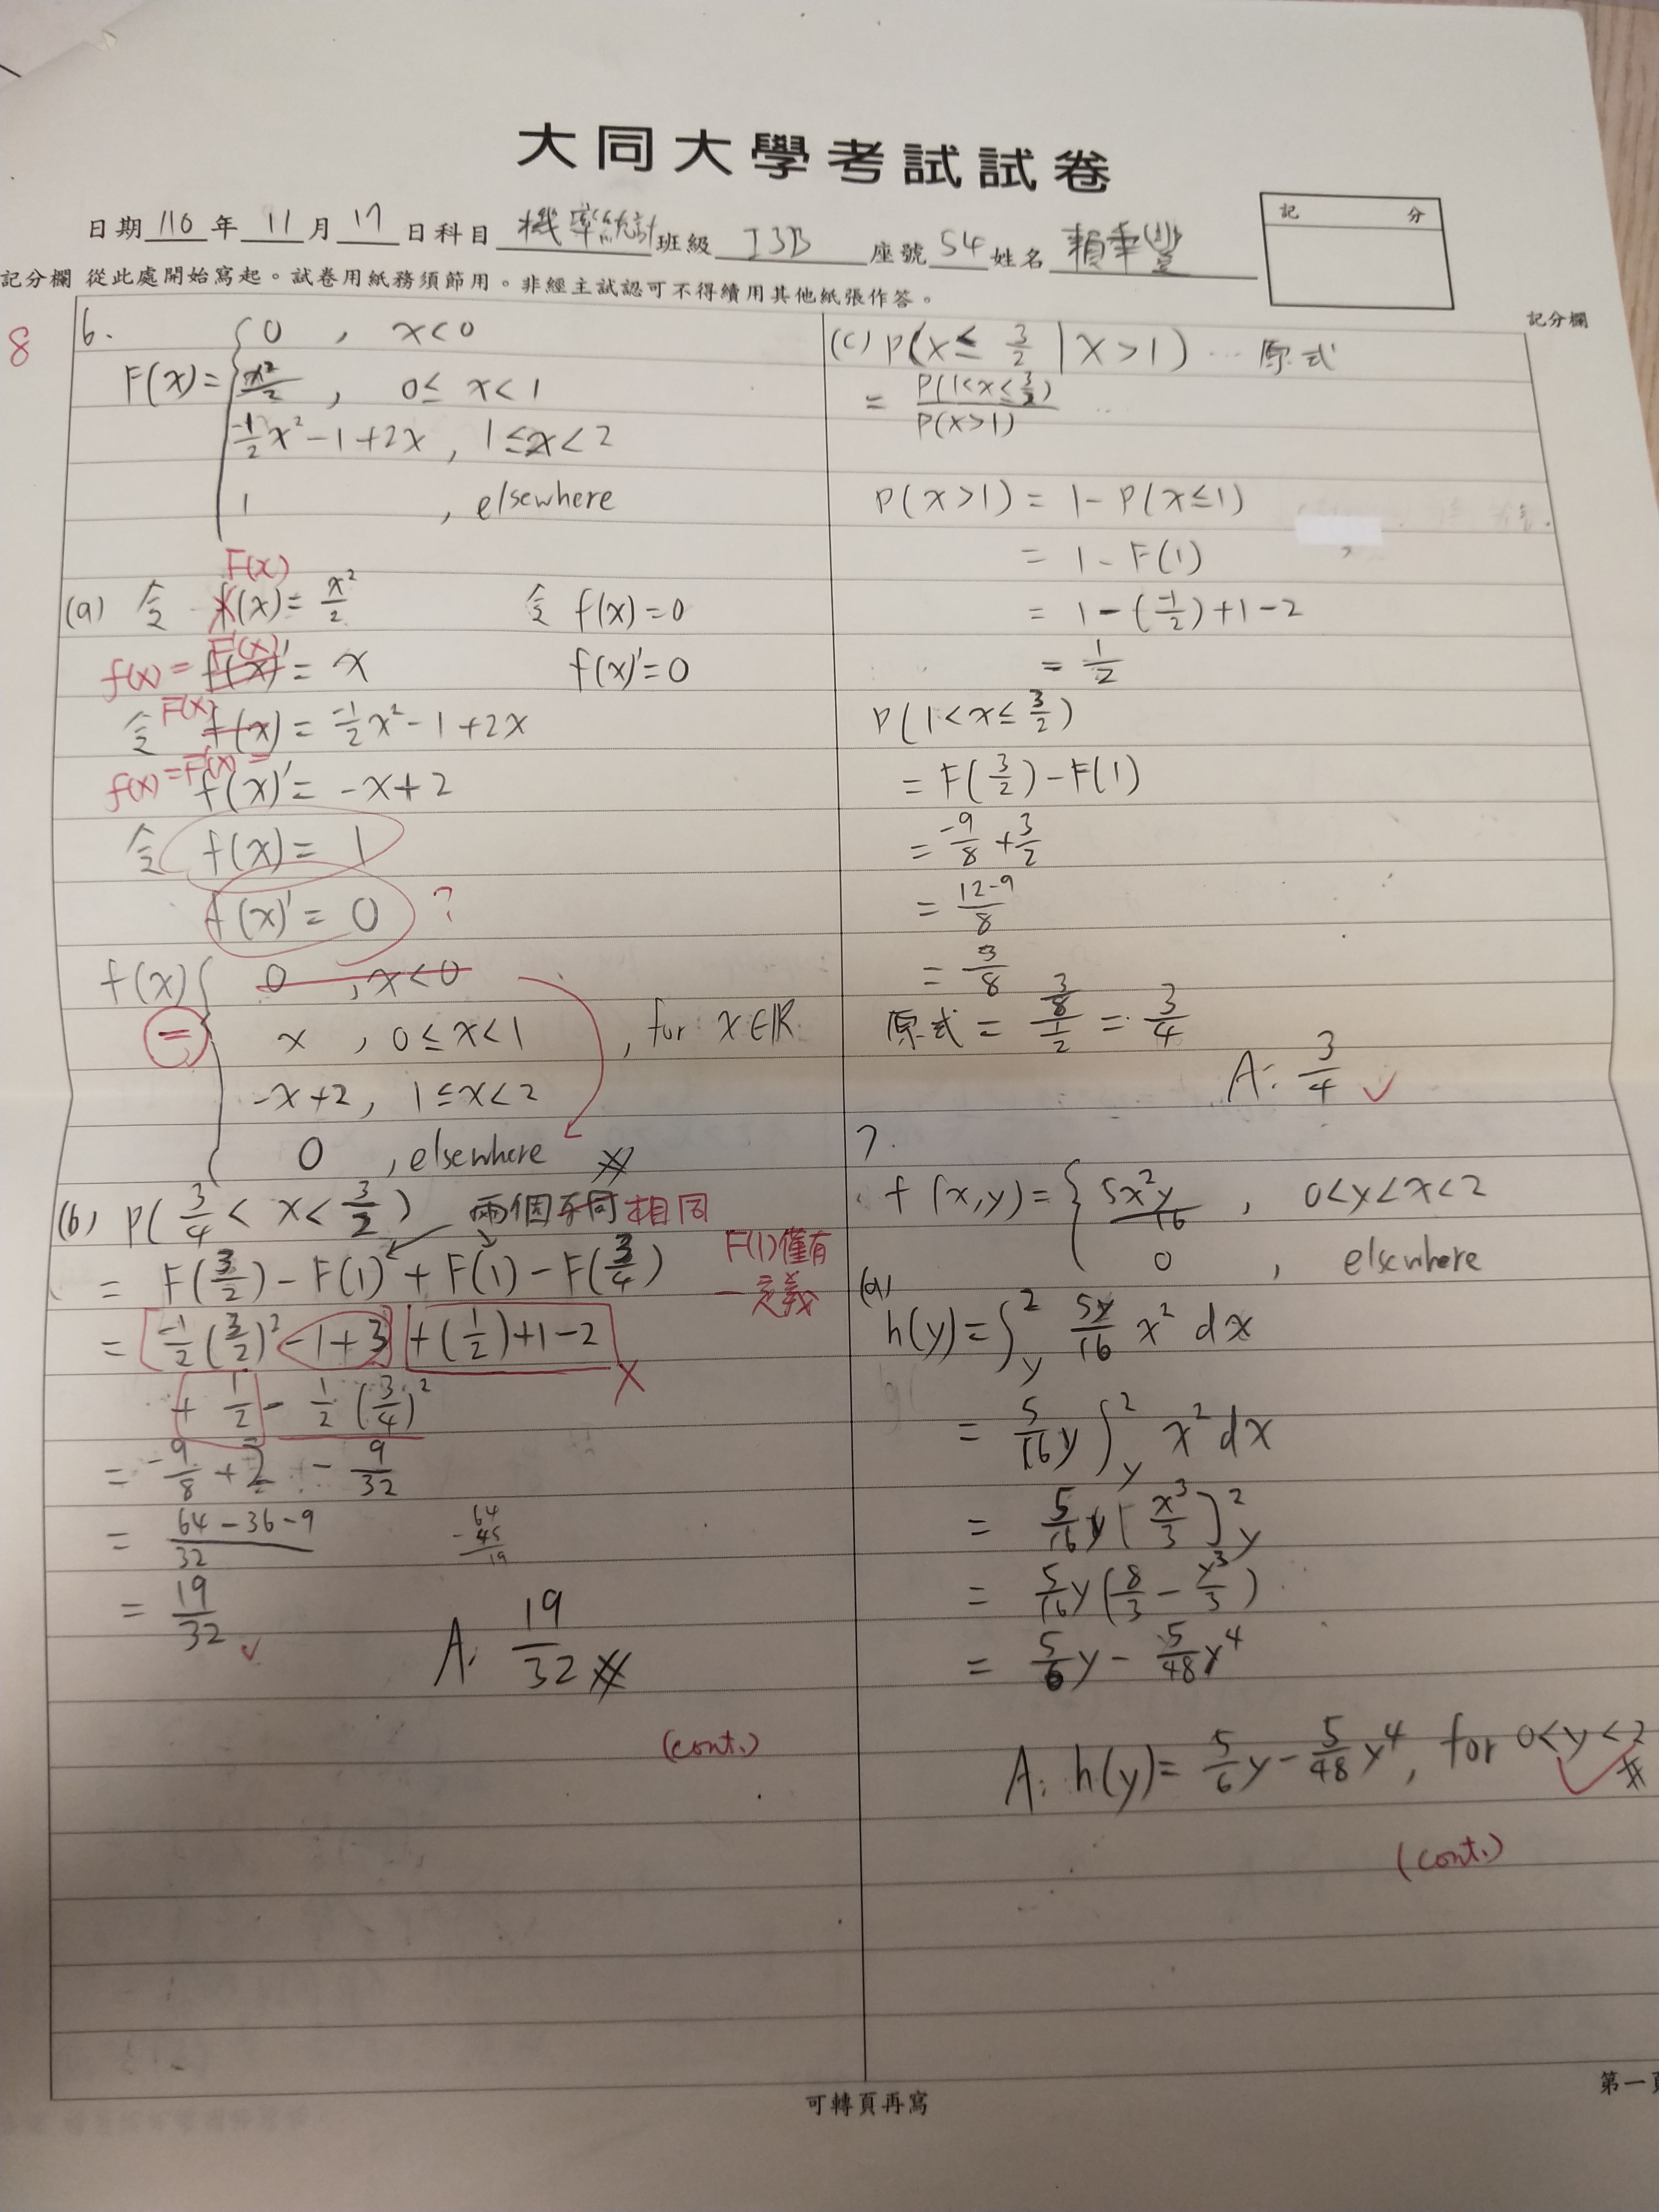 大同大學考試試卷
日期 110 年 11 月 17 日科目 機率統計 班級 I3B 座號 54 姓名
記分
記分欄 從此處開始寫起。試卷用紙務須節用。非經主試認可不得續用其他紙張作答。
記分欄
8
6.
F(x) = { 0 , x < 0
x²/2 , 0 ≤ x < 1
-1/2 x² - 1 + 2x , 1 ≤ x < 2
1 , elsewhere
F(x)
(a) 令 f(x) = x²/2 令 f(x) = 0
f(x) = F(x)' f(x)' = x f(x)' = 0
令 F(x) f(x) = -1/2 x² - 1 + 2x
f(x) = F(x)' = f(x)' = -x + 2
令 f(x) = 1
f(x)' = 0 ?
f(x) = { 0 , x < 0
x , 0 ≤ x < 1 , for x ∈ R
-x + 2 , 1 ≤ x < 2
0 , elsewhere
(b) P( 3/4 < x < 3/2 ) 兩個不同 相同
= F(3/2) - F(1) + F(1) - F(3/4) F(1)僅有
一定義
= -1/2 (3/2)² - 1 + 3 + (1/2) + 1 - 2
+ 1/2 - 1/2 (3/4)²
= -9/8 + 2 - 9/32
= 64 - 36 - 9 / 32
64
- 45
19
= 19/32
A: 19/32
(cont.)
(c) P( x ≤ 3/2 | x > 1 ) … 原式
= P(1 < x ≤ 3/2) / P(x > 1)
P(x > 1) = 1 - P(x ≤ 1)
= 1 - F(1)
= 1 - (-1/2) + 1 - 2
= 1/2
P(1 < x ≤ 3/2)
= F(3/2) - F(1)
= -9/8 + 3/2
= 12-9 / 8
= 3/8
原式 = 3/8 / 1/2 = 3/4
A: 3/4
7.
f(x,y) = { 5x²y/16 , 0 < y < x < 2
0 , elsewhere
(a)
h(y) = ∫_y^2 5y/16 x² dx
= 5/16 y ∫_y^2 x² dx
= 5/16 y [ x³/3 ]_y^2
= 5/16 y ( 8/3 - y³/3 )
= 5/6 y - 5/48 y⁴
A: h(y) = 5/6 y - 5/48 y⁴ , for 0 < y < 2
(cont.)
可轉頁再寫
第一頁